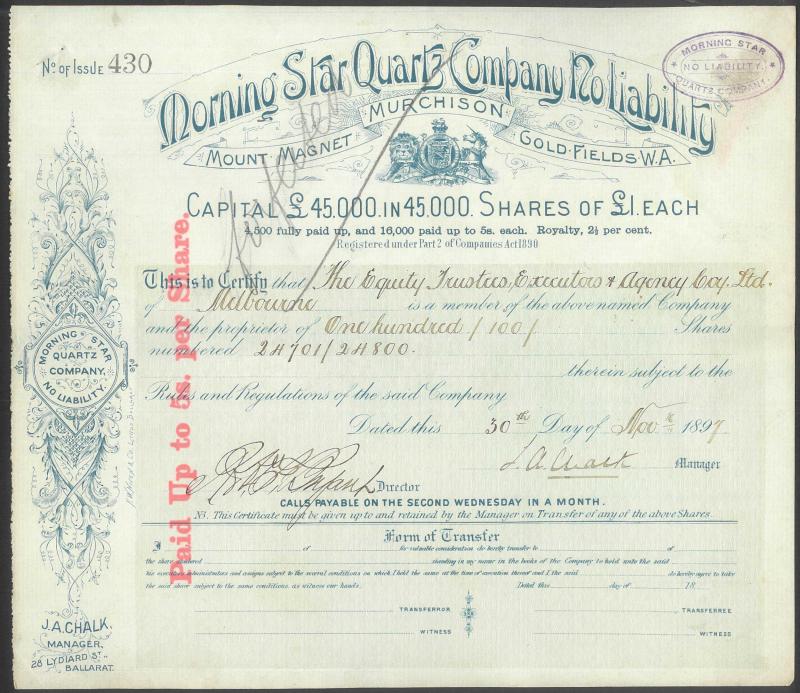 No. of Issue 430
Morning Star Quartz Company No Liability
MURCHISON
MOUNT MAGNET
GOLD-FIELDS W.A.
MORNING STAR
NO LIABILITY.
QUARTZ COMPANY.
CAPITAL £45,000. IN 45,000. SHARES OF £1. EACH
4,500 fully paid up, and 16,000 paid up to 5s. each. Royalty, 2½ per cent.
Registered under Part 2 of Companies Act 1890
Paid Up to 5s. per Share.
This is to Certify that The Equity Trustees, Executors & Agency Coy. Ltd.
of Melbourne is a member of the above named Company
and the proprietor of One hundred / 100 / Shares
numbered 24701/24800.
therein subject to the
Rules and Regulations of the said Company
Dated this 30th Day of Nov 1897
J. A. Chalk Manager
Director
CALLS PAYABLE ON THE SECOND WEDNESDAY IN A MONTH.
NB. This Certificate must be given up and retained by the Manager on Transfer of any of the above Shares.
Form of Transfer
I of for valuable consideration do hereby transfer to of
the share numbered standing in my name in the books of the Company to hold unto the said
his executors administrators and assigns subject to the several conditions on which I held the same at the time of execution thereof and I, the said do hereby agree to take
the said share subject to the same conditions as witness our hands. Dated this day of 18
TRANSFERROR TRANSFEREE
WITNESS WITNESS
MORNING STAR
QUARTZ
COMPANY,
NO LIABILITY.
J.A. CHALK,
MANAGER,
28 LYDIARD ST.,
BALLARAT.